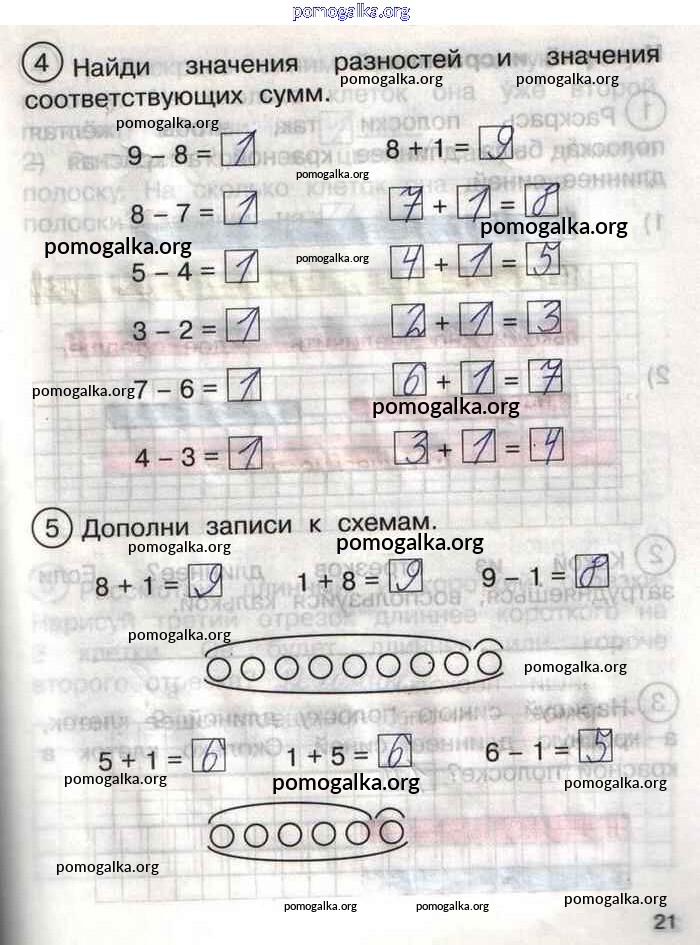 pomogalka.org
4 Найди значения разностей и значения
pomogalka.org pomogalka.org
соответствующих сумм.
pomogalka.org
9 – 8 = 1 8 + 1 = 9
pomogalka.org
8 – 7 = 1 7 + 1 = 8
pomogalka.org
pomogalka.org pomogalka.org
5 – 4 = 1 4 + 1 = 5
3 – 2 = 1 2 + 1 = 3
7 – 6 = 1 6 + 1 = 7
pomogalka.org
pomogalka.org
4 – 3 = 1 3 + 1 = 4
5 Дополни записи к схемам.
pomogalka.org pomogalka.org
8 + 1 = 9 1 + 8 = 9 9 – 1 = 8
pomogalka.org
pomogalka.org
5 + 1 = 6 1 + 5 = 6 6 – 1 = 5
pomogalka.org pomogalka.org pomogalka.org
pomogalka.org
pomogalka.org pomogalka.org pomogalka.org
21